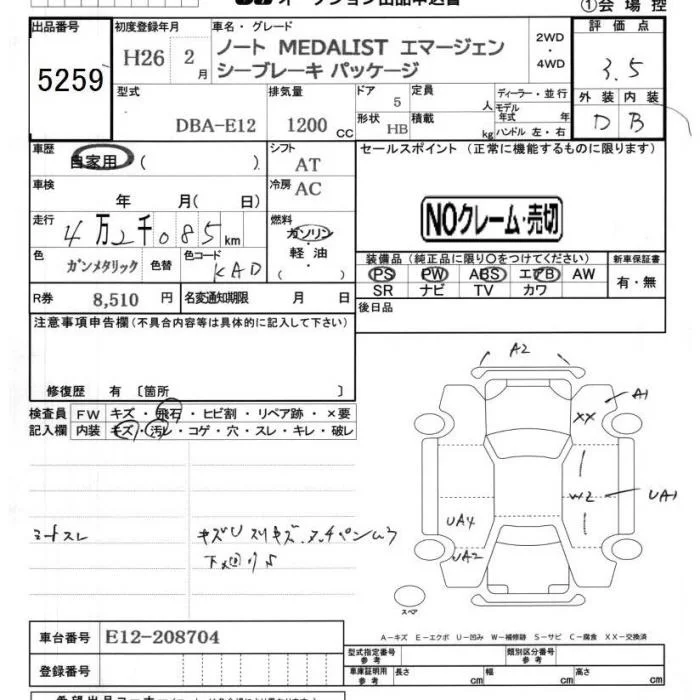 オークション出品申込書
①会場控
出品番号
5259
初度登録年月
H26 2 月
車名・グレード
ノート MEDALIST エマージェン
シーブレーキ パッケージ
2WD
・
4WD
評価点
3.5
外装 内装
D B
型式
DBA-E12
排気量
1200 CC
ドア
5
定員
人
ディーラー・並行
モデル
年式 年
形状 HB
積載
kg
ハンドル 左・右
車歴
自家用 ( )
シフト
AT
セールスポイント (正常に機能するものに限ります)
車検
年 月( 日)
冷房
AC
NOクレーム・売切
走行
4万2千085 km
燃料
ガソリン
・
軽油
・
( )
色
ガンメタリック
色替
色コード
KAD
装備品(純正品に限り○をつけてください)
PS PW ABS エアB AW
SR ナビ TV カワ
新車保証書
有・無
R券
8,510 円
名変通知期限
月 日
後日品
注意事項申告欄(不具合内容等は具体的に記入して下さい)
修復歴 有 〔箇所 〕
検査員
記入欄
FW キズ・飛石・ヒビ割・リペア跡・×要
内装 キズ・汚レ・コゲ・穴・スレ・キレ・破レ
A2
A1
XX
W2
UA1
UA4
UA2
シートスレ
キズU スリキズ
スペア
A-キズ E-エクボ U-凹み W-補修跡 S-サビ C-腐食 XX-交換済
車台番号
E12-208704
登録番号
型式指定番号
参考
類別区分番号
参考
車庫証明用
参考
長さ cm
幅 cm
高さ cm